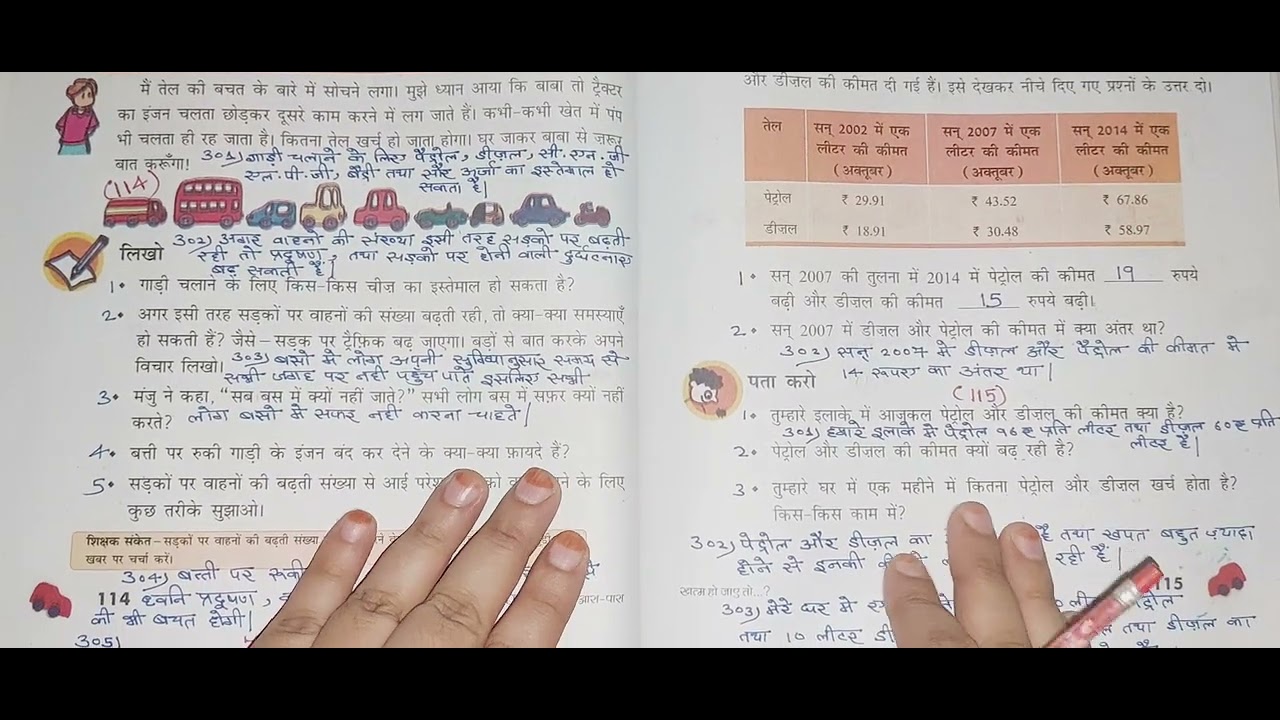 मैं तेल की बचत के बारे में सोचने लगा। मुझे ध्यान आया कि बाबा तो ट्रैक्टर
का इंजन चलता छोड़कर दूसरे काम करने में लग जाते हैं। कभी-कभी खेत में पंप
भी चलता ही रह जाता है। कितना तेल खर्च हो जाता होगा। घर जाकर बाबा से ज़रूर
बात करूँगा!
उ०१) गाड़ी चलाने के लिए पेट्रोल, डीज़ल, सी. एन. जी
एल. पी. जी, बैट्री तथा सौर ऊर्जा का इस्तेमाल हो
सकता है|
(114)
उ०२) अगर वाहनो की संख्या इसी तरह सड़को पर बढ़ती
रही तो प्रदूषण, तथा सड़को पर होनी वाली दुर्घटनाए
बढ़ सकती है|
लिखो
1. गाड़ी चलाने के लिए किस-किस चीज़ का इस्तेमाल हो सकता है?
2. अगर इसी तरह सड़कों पर वाहनों की संख्या बढ़ती रही, तो क्या-क्या समस्याएँ
हो सकती हैं? जैसे – सड़क पर ट्रैफ़िक बढ़ जाएगा। बड़ों से बात करके अपने
विचार लिखो।
उ०३) बसो मे लोग अपनी सुविधानुसार समय से
सभी जगह पर नही पहुँच पाते इसलिए सभी
3. मंजु ने कहा, “सब बस में क्यों नहीं जाते?” सभी लोग बस में सफ़र क्यों नहीं
करते? लोग बसो मे सफर नही करना चाहते|
4. बत्ती पर रुकी गाड़ी के इंजन बंद कर देने के क्या-क्या फ़ायदे हैं?
5. सड़कों पर वाहनों की बढ़ती संख्या से आई के लिए
कुछ तरीके सुझाओ।
शिक्षक संकेत – सड़कों पर वाहनों की बढ़ती संख्या
खबर पर चर्चा करें।
उ०४) बत्ती पर से
114 ध्वनि प्रदूषण, आस-पास
की भी बचत होगी|
उ०5)
और डीज़ल की कीमत दी गई है। इसे देखकर नीचे दिए गए प्रश्नों के उत्तर दो।
तेल सन् 2002 में एक लीटर की कीमत (अक्तूबर) सन् 2007 में एक लीटर की कीमत (अक्तूबर) सन् 2014 में एक लीटर की कीमत (अक्तूबर)
पेट्रोल ₹ 29.91 ₹ 43.52 ₹ 67.86
डीज़ल ₹ 18.91 ₹ 30.48 ₹ 58.97
1. सन् 2007 की तुलना में 2014 में पेट्रोल की कीमत 19 रुपये
बढ़ी और डीज़ल की कीमत 15 रुपये बढ़ी।
2. सन् 2007 में डीज़ल और पेट्रोल की कीमत में क्या अंतर था?
उ०२) सन् 2007 मे डीज़ल और पेट्रोल की कीमत मे
14 रूपए का अंतर था|
पता करो
(115)
1. तुम्हारे इलाके में आजकल पेट्रोल और डीज़ल की कीमत क्या है?
उ०१) हमारे इलाके मे पेट्रोल 96 रू प्रति लीटर तथा डीज़ल 60 रू प्रति
लीटर है|
2. पेट्रोल और डीज़ल की कीमत क्यों बढ़ रही है?
3. तुम्हारे घर में एक महीने में कितना पेट्रोल और डीज़ल खर्च होता है?
किस-किस काम में?
उ०२) पेट्रोल और डीज़ल का है तथा खपत बहुत ज़्यादा
होने से इनकी रही है|
115
खत्म हो जाए तो...?
उ०३) मेरे घर मे पेट्रोल
तथा 10 लीटर तथा डीज़ल का